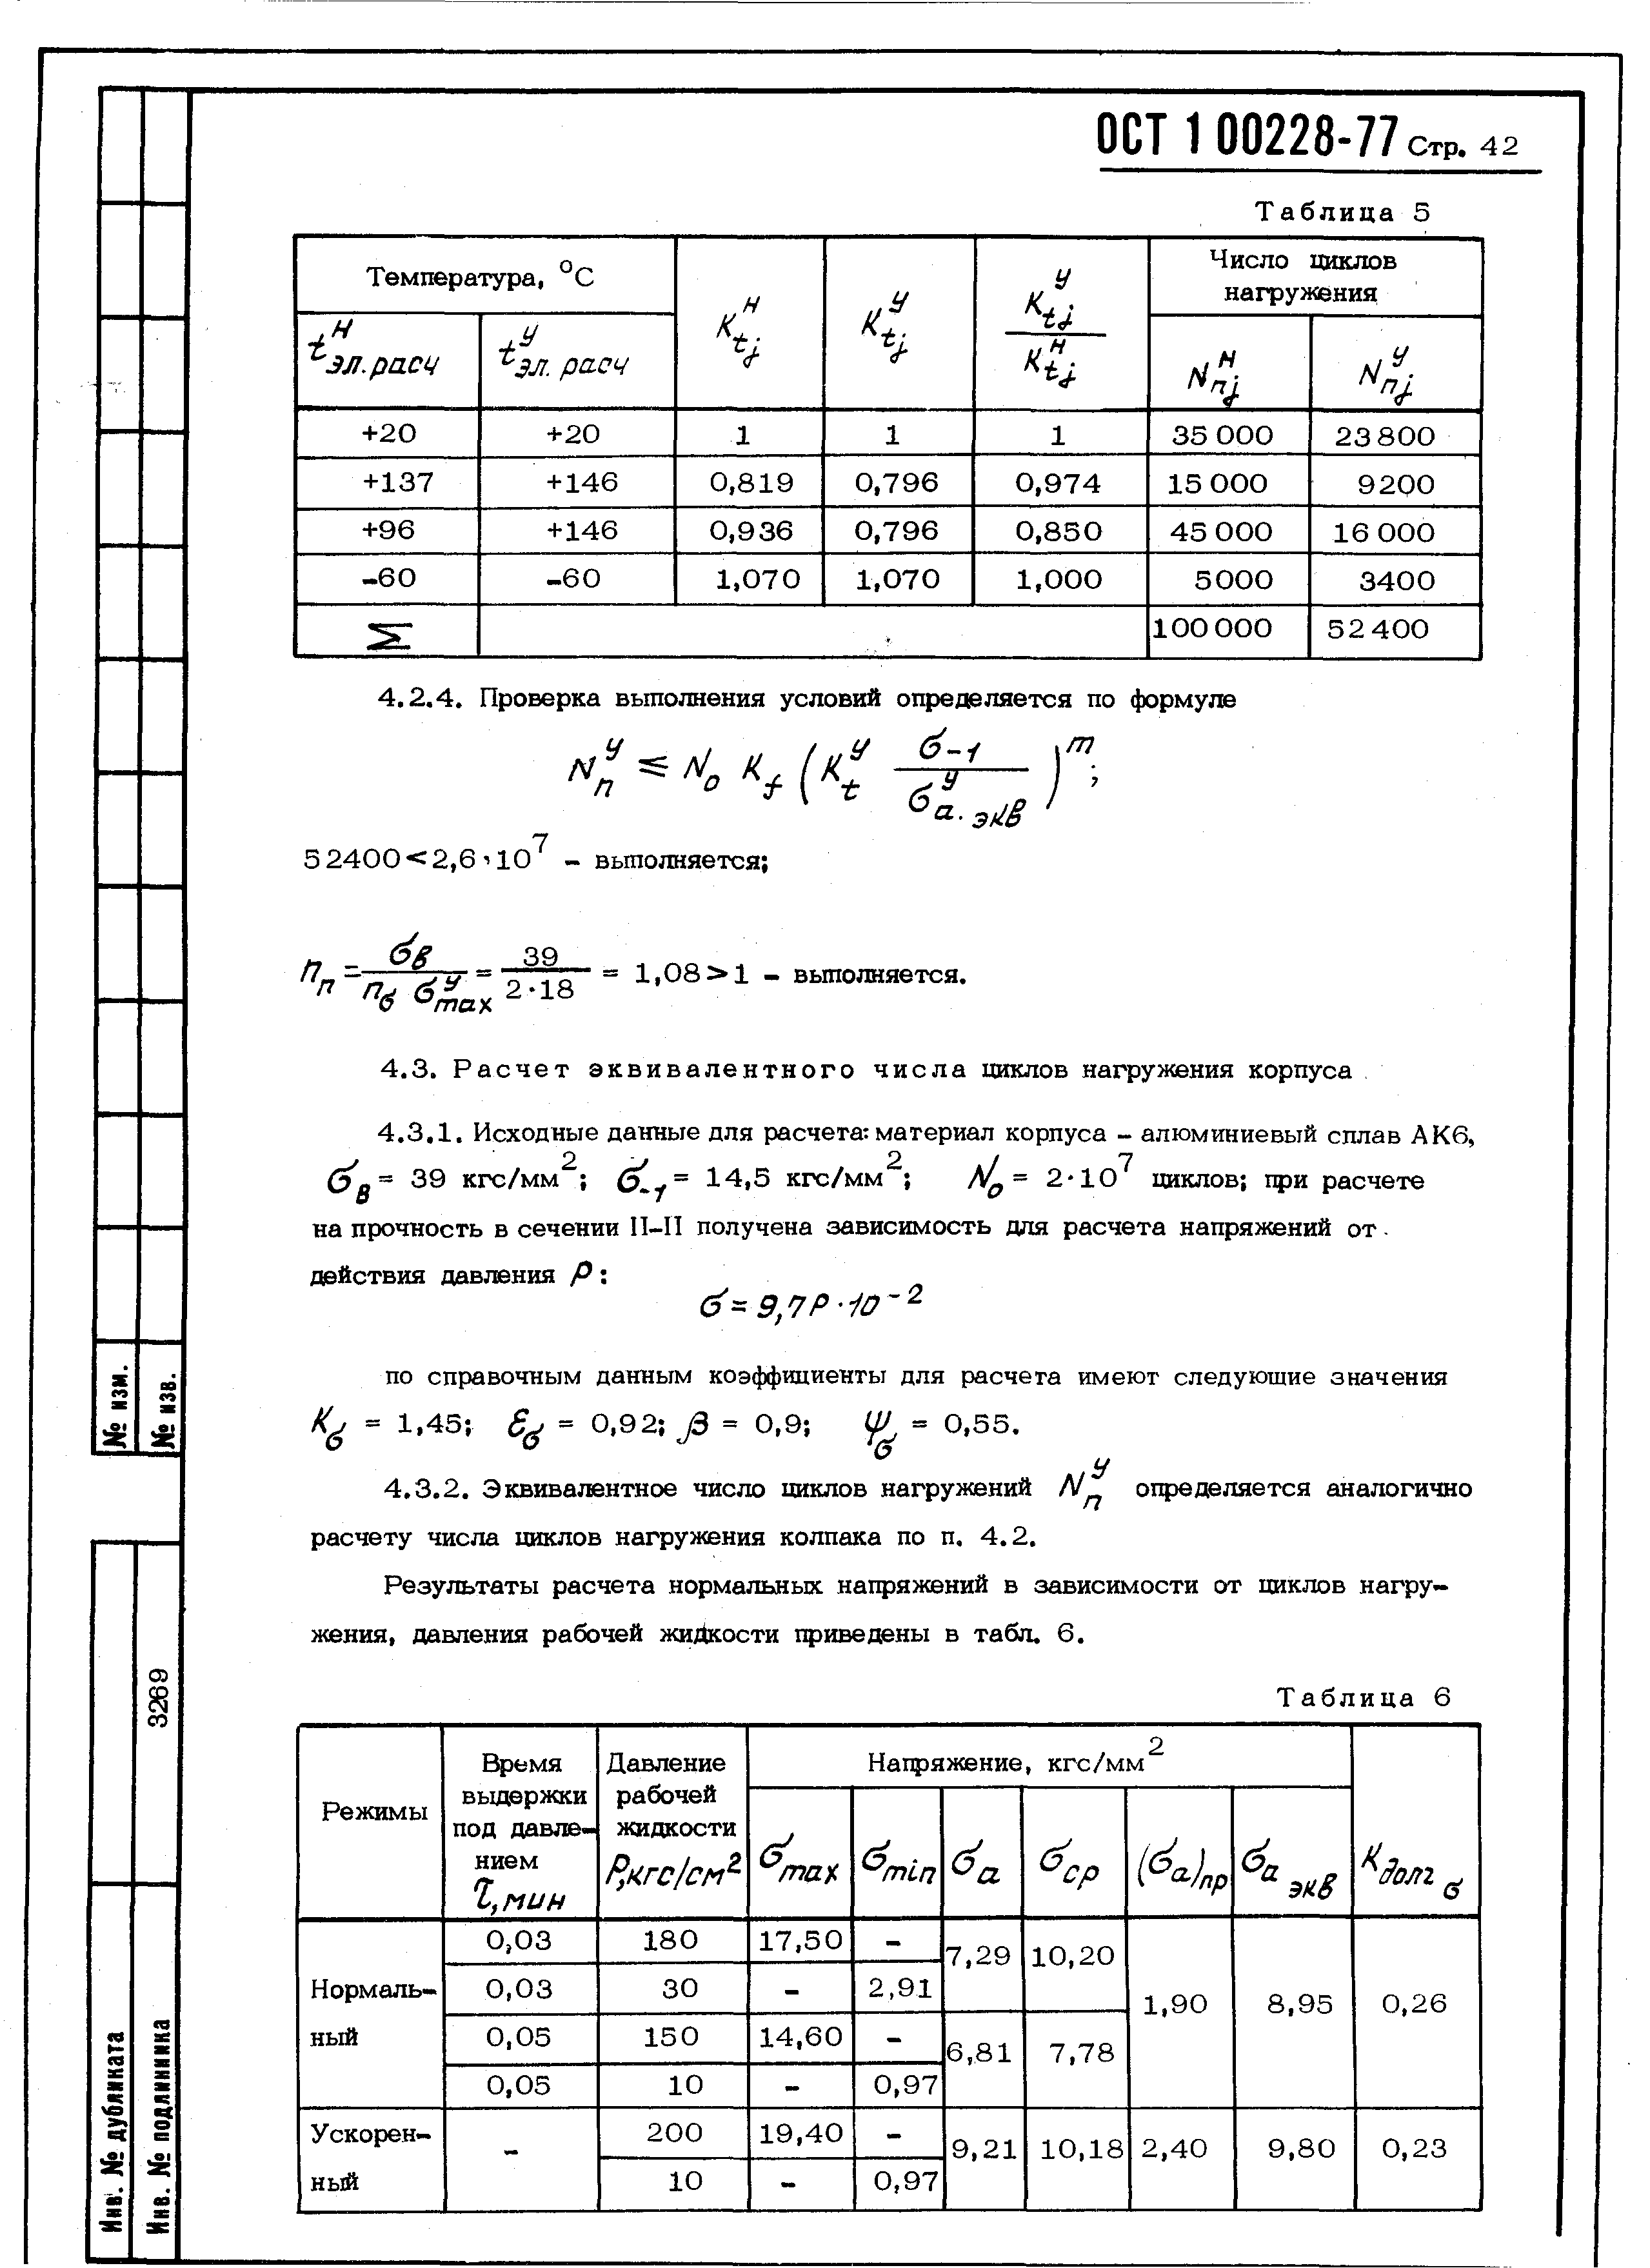 ОСТ 1 00228-77 Стр. 42
Таблица 5
Температура, °С
Число циклов
нагружения
t^н эл.расч t^у эл. расч K^н_tj K^у_tj K^у_tj / K^н_tj N^н_пj N^у_пj
+20 +20 1 1 1 35 000 23 800
+137 +146 0,819 0,796 0,974 15 000 9200
+96 +146 0,936 0,796 0,850 45 000 16 000
-60 -60 1,070 1,070 1,000 5000 3400
Σ 100 000 52 400
4.2.4. Проверка выполнения условий определяется по формуле
N^у_п ≤ N_o K_f (K^у_t σ_-1 / σ^у_а.экв)^m;
52400 < 2,6·10^7 – выполняется;
n_п = σ_в / n_б σ^у_max = 39 / 2·18 = 1,08 > 1 – выполняется.
4.3. Расчет эквивалентного числа циклов нагружения корпуса
4.3.1. Исходные данные для расчета: материал корпуса – алюминиевый сплав АК6,
σ_в = 39 кгс/мм²; σ_-1 = 14,5 кгс/мм²; N_o = 2·10^7 циклов; при расчете
на прочность в сечении II–II получена зависимость для расчета напряжений от
действия давления P:
σ = 9,7P·10^-2
по справочным данным коэффициенты для расчета имеют следующие значения
K_σ = 1,45; ε_σ = 0,92; β = 0,9; ψ_σ = 0,55.
4.3.2. Эквивалентное число циклов нагружений N^у_п определяется аналогично
расчету числа циклов нагружения колпака по п. 4.2.
Результаты расчета нормальных напряжений в зависимости от циклов нагру-
жения, давления рабочей жидкости приведены в табл. 6.
Таблица 6
Режимы
Время
выдержки
под давле-
нием
τ, мин
Давление
рабочей
жидкости
P, кгс/см²
Напряжение, кгс/мм²
σ_max σ_min σ_a σ_ср (σ_a)_пр σ_a экв K_долг σ
Нормаль-
ный
0,03 180 17,50 – 7,29 10,20
0,03 30 – 2,91
1,90 8,95 0,26
0,05 150 14,60 – 6,81 7,78
0,05 10 – 0,97
Ускорен-
ный
– 200 19,40 – 9,21 10,18 2,40 9,80 0,23
10 – 0,97
№ изм.
№ изв.
3269
Инв. № дубликата
Инв. № подлинника